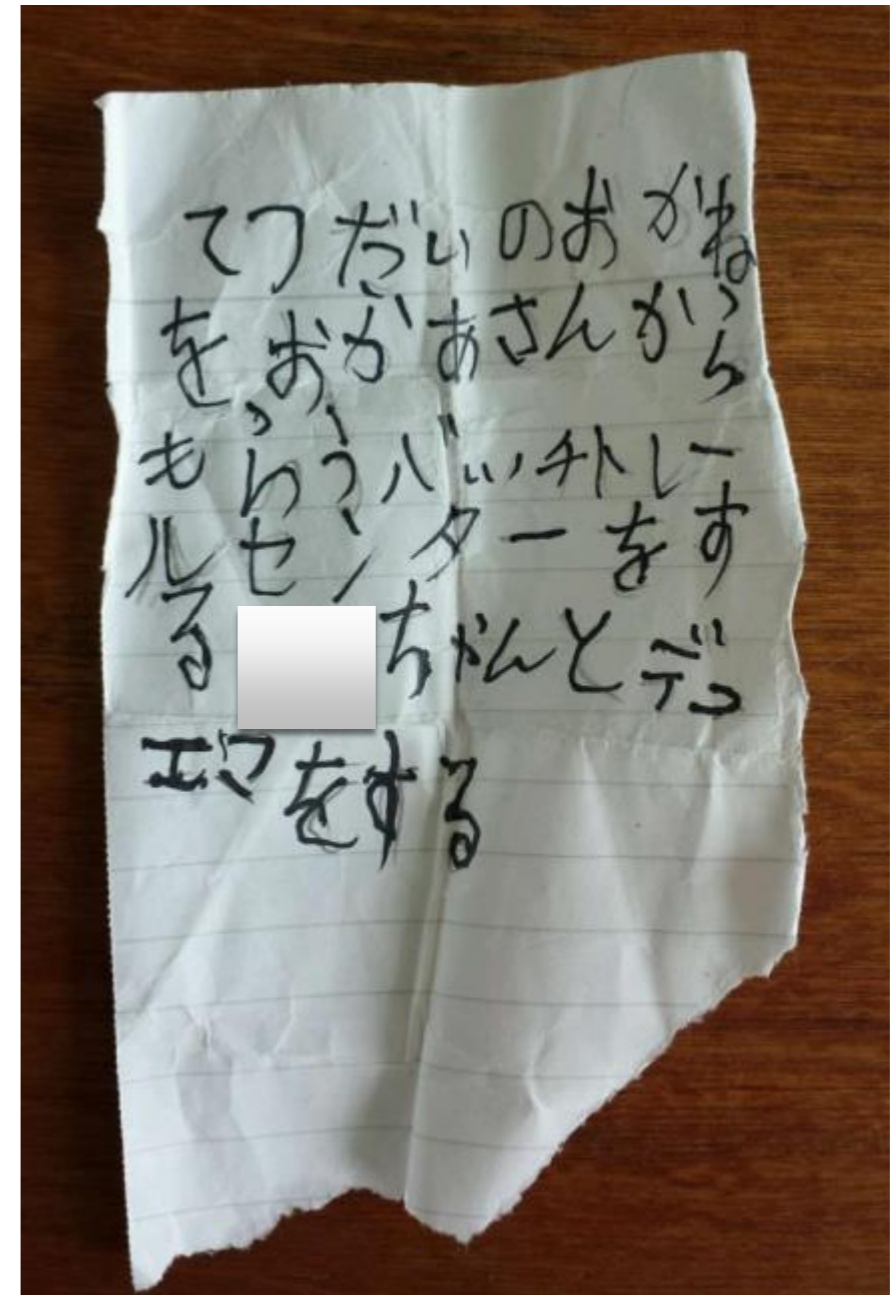 てつだいのおがね
をおかあさんから
もらうバッチトレー
ルセンターをす
る ちゃんとデコ
エマをする